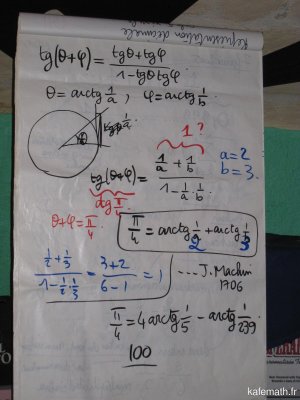 Représentation décimale
tg(θ+φ) = (tgθ+tgφ)/(1-tgθtgφ)
θ = arctg 1/a, φ = arctg 1/b.
1?
tg(θ+φ) = (1/a + 1/b)/(1 - 1/a 1/b)
a = 2
b = 3.
θ+φ = π/4
π/4 = arctg 1/2 + arctg 1/3
(1/2 + 1/3)/(1 - 1/2 1/3) = (3+2)/(6-1) = 1
---- J. Machin
1706
π/4 = 4 arctg 1/5 - arctg 1/239
100
kafemath.fr